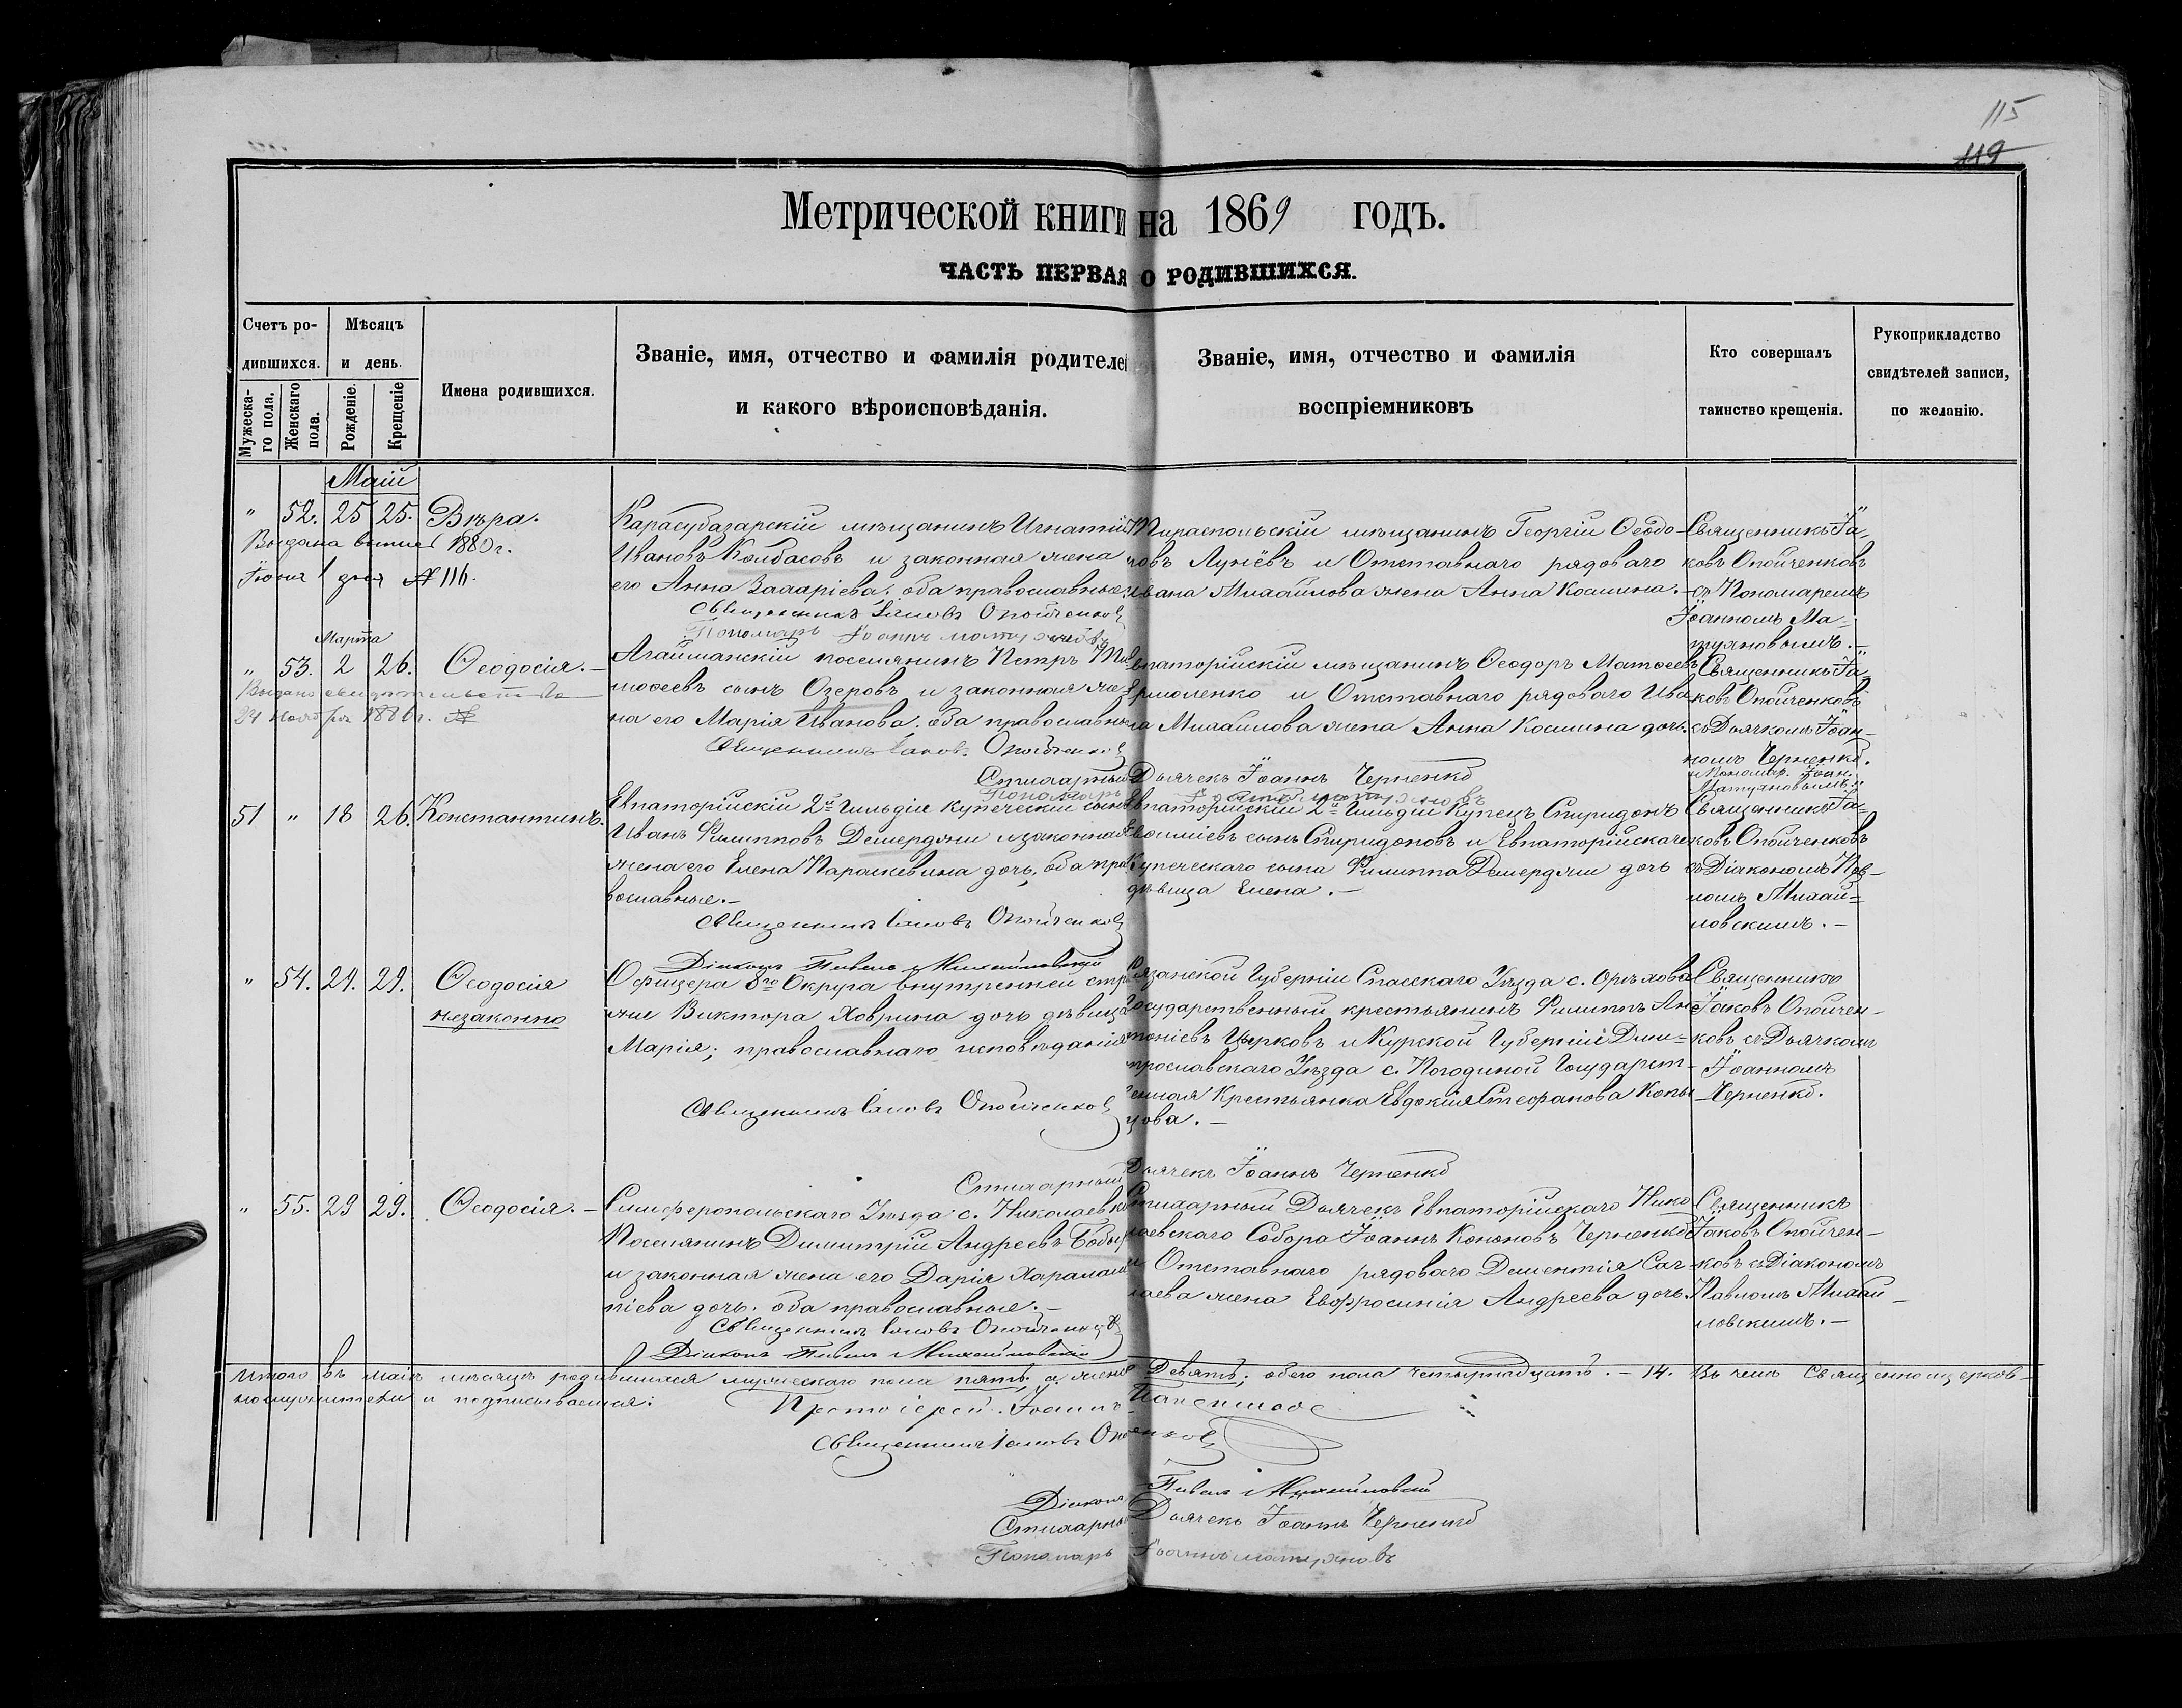 115
119
Метрической книги на 1869 годъ.
ЧАСТЬ ПЕРВАЯ О РОДИВШИХСЯ.
Счетъ родившихся.
Мужескаго пола.
Женскаго пола.
Мѣсяцъ и день.
Рожденіе.
Крещеніе
Имена родившихся.
Званіе, имя, отчество и фамилія родителей
и какого вѣроисповѣданія.
Званіе, имя, отчество и фамилія
воспріемниковъ
Кто совершалъ
таинство крещенія.
Рукоприкладство
свидѣтелей записи,
по желанію.
Маій
" 52. 25 25. Вѣра.
Выдана выпись 1880 г.
Іюня 1 дня № 116.
Карасубазарскій мѣщанинъ Игнатій
Ивановъ Колбасовъ и законная жена
его Анна Захаріева. оба православные.
Священникъ Іаковъ Опойченковъ
Пономарь Іоаннъ
Тираспольскій мѣщанинъ Георгій Ѳеодо-
ровъ Лунёвъ и Отставнаго рядоваго
Ивана Михайлова жена Анна Космина.
Священникъ Іа-
ковъ Опойченковъ
съ Пономаремъ
Іоанномъ Ма-
туяновымъ.-
Марта
" 53. 2 26. Ѳеодосія.-
Выдано свидѣтельство
24 Ноября 1886 г. №
Агайманскій поселянинъ Петръ Тимо-
ѳеевъ сынъ Озеровъ и законная же-
на его Марія Иванова. оба православные
Священникъ Іаковъ Опойченковъ
Евпаторійскій мѣщанинъ Ѳеодоръ Матѳеевъ
Ермоленко и Отставнаго рядоваго Ива-
на Михайлова жена Анна Космина дочь.
Стихарный Дьячекъ Іоаннъ Черненко
Пономарь
Священникъ Іа-
ковъ Опойченковъ
съ Дьячкомъ Іоан-
номъ Черненко.
и Пономар. Іоан.
Матуяновымъ.
51 " 18 26. Константинъ.
Евпаторійскій 2й Гильдіи купеческій сынъ
Иванъ Филипповъ Демерджи и законная
жена его Елена Параскевина дочь, оба пра-
вославные.-
Священникъ Іаковъ Опойченковъ
Діаконъ Павелъ Михайловскій
Евпаторійскій 2й Гильдіи Купецъ Спиридонъ
сынъ Спиридоновъ и Евпаторійскаго
Купеческаго сына Филиппа Демерджи дочь
дѣвица Елена.-
Священникъ Іа-
ковъ Опойченковъ
съ Діакономъ Пав-
ломъ Михай-
ловскимъ.-
" 54. 29. 29. Ѳеодосія
незаконно
Офицера 8го Округа внутренней стра-
жи Виктора Ховрина дочь дѣвица
Марія; православнаго исповѣданія
Священникъ Іаковъ Опойченковъ
Рязанской Губерніи Спасскаго Уѣзда с. Орѣхова
Государственный крестьянинъ Филиппъ Ан-
тоніевъ Цырковъ и Курской Губерніи Дми-
тровскаго Уѣзда с. Погодиной Государст-
венная Крестьянка Евдокія Стефанова Копы-
цова.-
Стихарный Дьячекъ Іоаннъ Черненко
Священникъ
Іаковъ Опойчен-
ковъ съ Дьячкомъ
Іоанномъ
Черненко.
" 55. 29 29. Ѳеодосія.-
Симферопольскаго Уѣзда с. Николаевки
Поселянинъ Димитрій Андреевъ
и законная жена его Дарія Харалам-
піева дочь. оба православные.-
Священникъ Іаковъ Опойченковъ
Діаконъ Павелъ Михайловскій
Стихарный Дьячекъ Евпаторійскаго Нико-
лаевскаго Собора Іоаннъ Кононовъ Черненко
и Отставнаго рядоваго Дементія
жена Евфросинія Андреева дочь.
Священникъ
Іаковъ Опойчен-
ковъ съ Діакономъ
Павломъ Михай-
ловскимъ.-
Итого въ маіѣ мѣсяцѣ родившихся мужескаго пола пять, а женс. Девять; обего пола четырнадцать.- 14. Въ чемъ Священноцерков-
нослужители и подписываемся:
Протоіерей Іоаннъ
Священникъ Іаковъ Опойченковъ
Діаконъ Павелъ Михайловскій
Стихарный Дьячекъ Іоаннъ Черненко
Пономарь Іоаннъ Матуяновъ